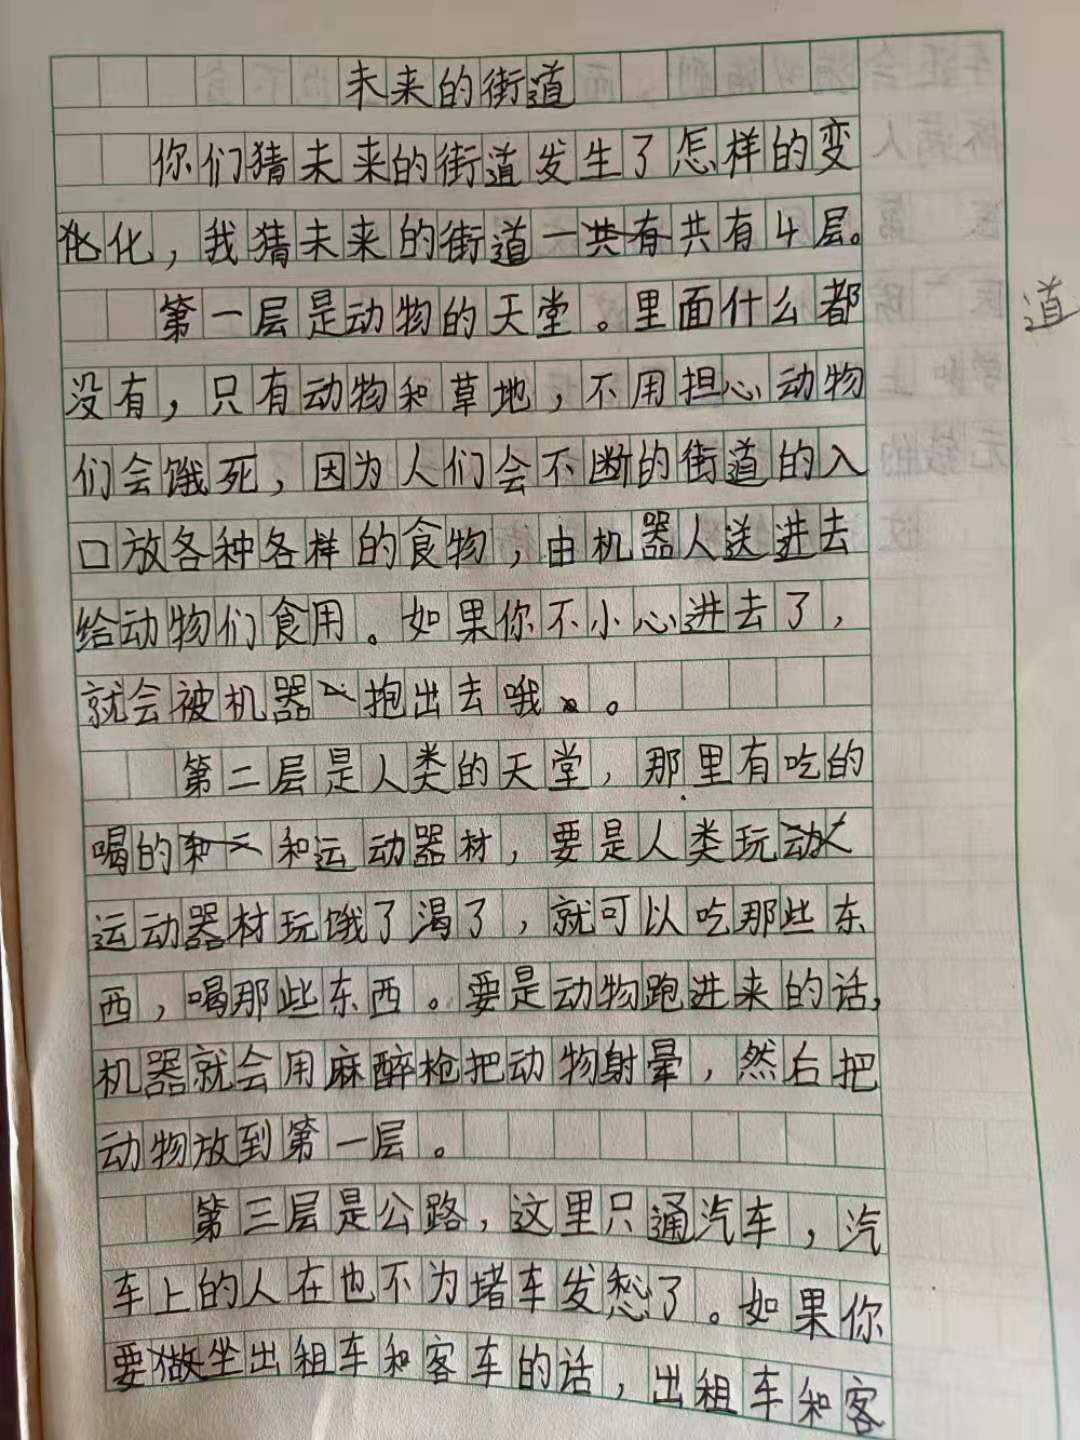 未来的街道
你们猜未来的街道发生了怎样的变
化，我猜未来的街道一共有4层。
第一层是动物的天堂。里面什么都
道
没有，只有动物和草地，不用担心动物
们会饿死，因为人们会不断的街道的入
口放各种各样的食物，由机器人送进去
给动物们食用。如果你不小心进去了，
就会被机器抱出去哦。
第二层是人类的天堂，那里有吃的
喝的和运动器材，要是人类玩
运动器材玩饿了渴了，就可以吃那些东
西，喝那些东西。要是动物跑进来的话，
机器就会用麻醉枪把动物射晕，然后把
动物放到第一层。
第三层是公路，这里只通汽车，汽
车上的人在也不为堵车发愁了。如果你
要坐出租车和客车的话，出租车和客